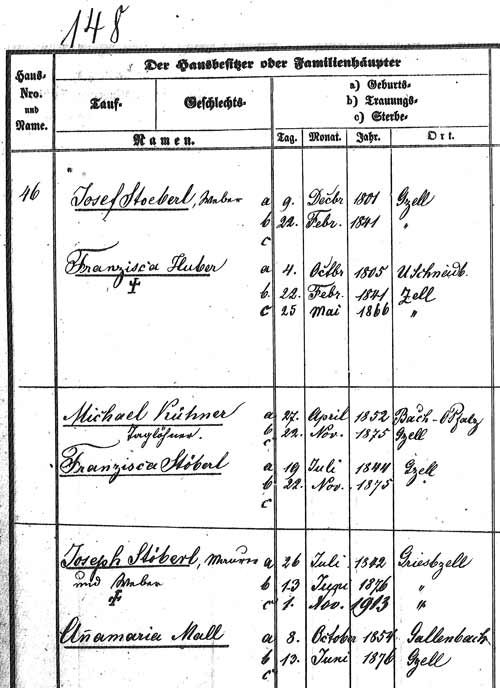 148
Der Hausbesitzer oder Familienhäupter
Haus-
Nro.
und
Name.
Tauf- Geschlechts-
Namen.
a) Geburts-
b) Trauungs-
c) Sterbe-
Tag. Monat. Jahr. Ort.
46 Josef Stoeberl, Weber a 9. Decbr 1801 Gzell
b 22. Febr. 1841 "
c
Franzisca Huber a 4. Octbr 1805 USchneidb.
b. 22. Febr. 1841 Zell
c 25 Mai 1866 "
Michael Kühner a 27. April 1852 Bach-OPfalz
Taglöhner. b 22. Nov. 1875 Gzell
c
Franzisca Stöberl a 19 Juli 1844 Gzell
b 22. Nov. 1875 "
c
Joseph Stöberl, Maurer a 26 Juli 1842 Griesbzell
und Weber b 13 Juni 1876 "
c 1. Nov. 1913 "
Anamaria Mall a 8. October 1854 Gallenbach
b 13. Juni 1876 Gzell
c